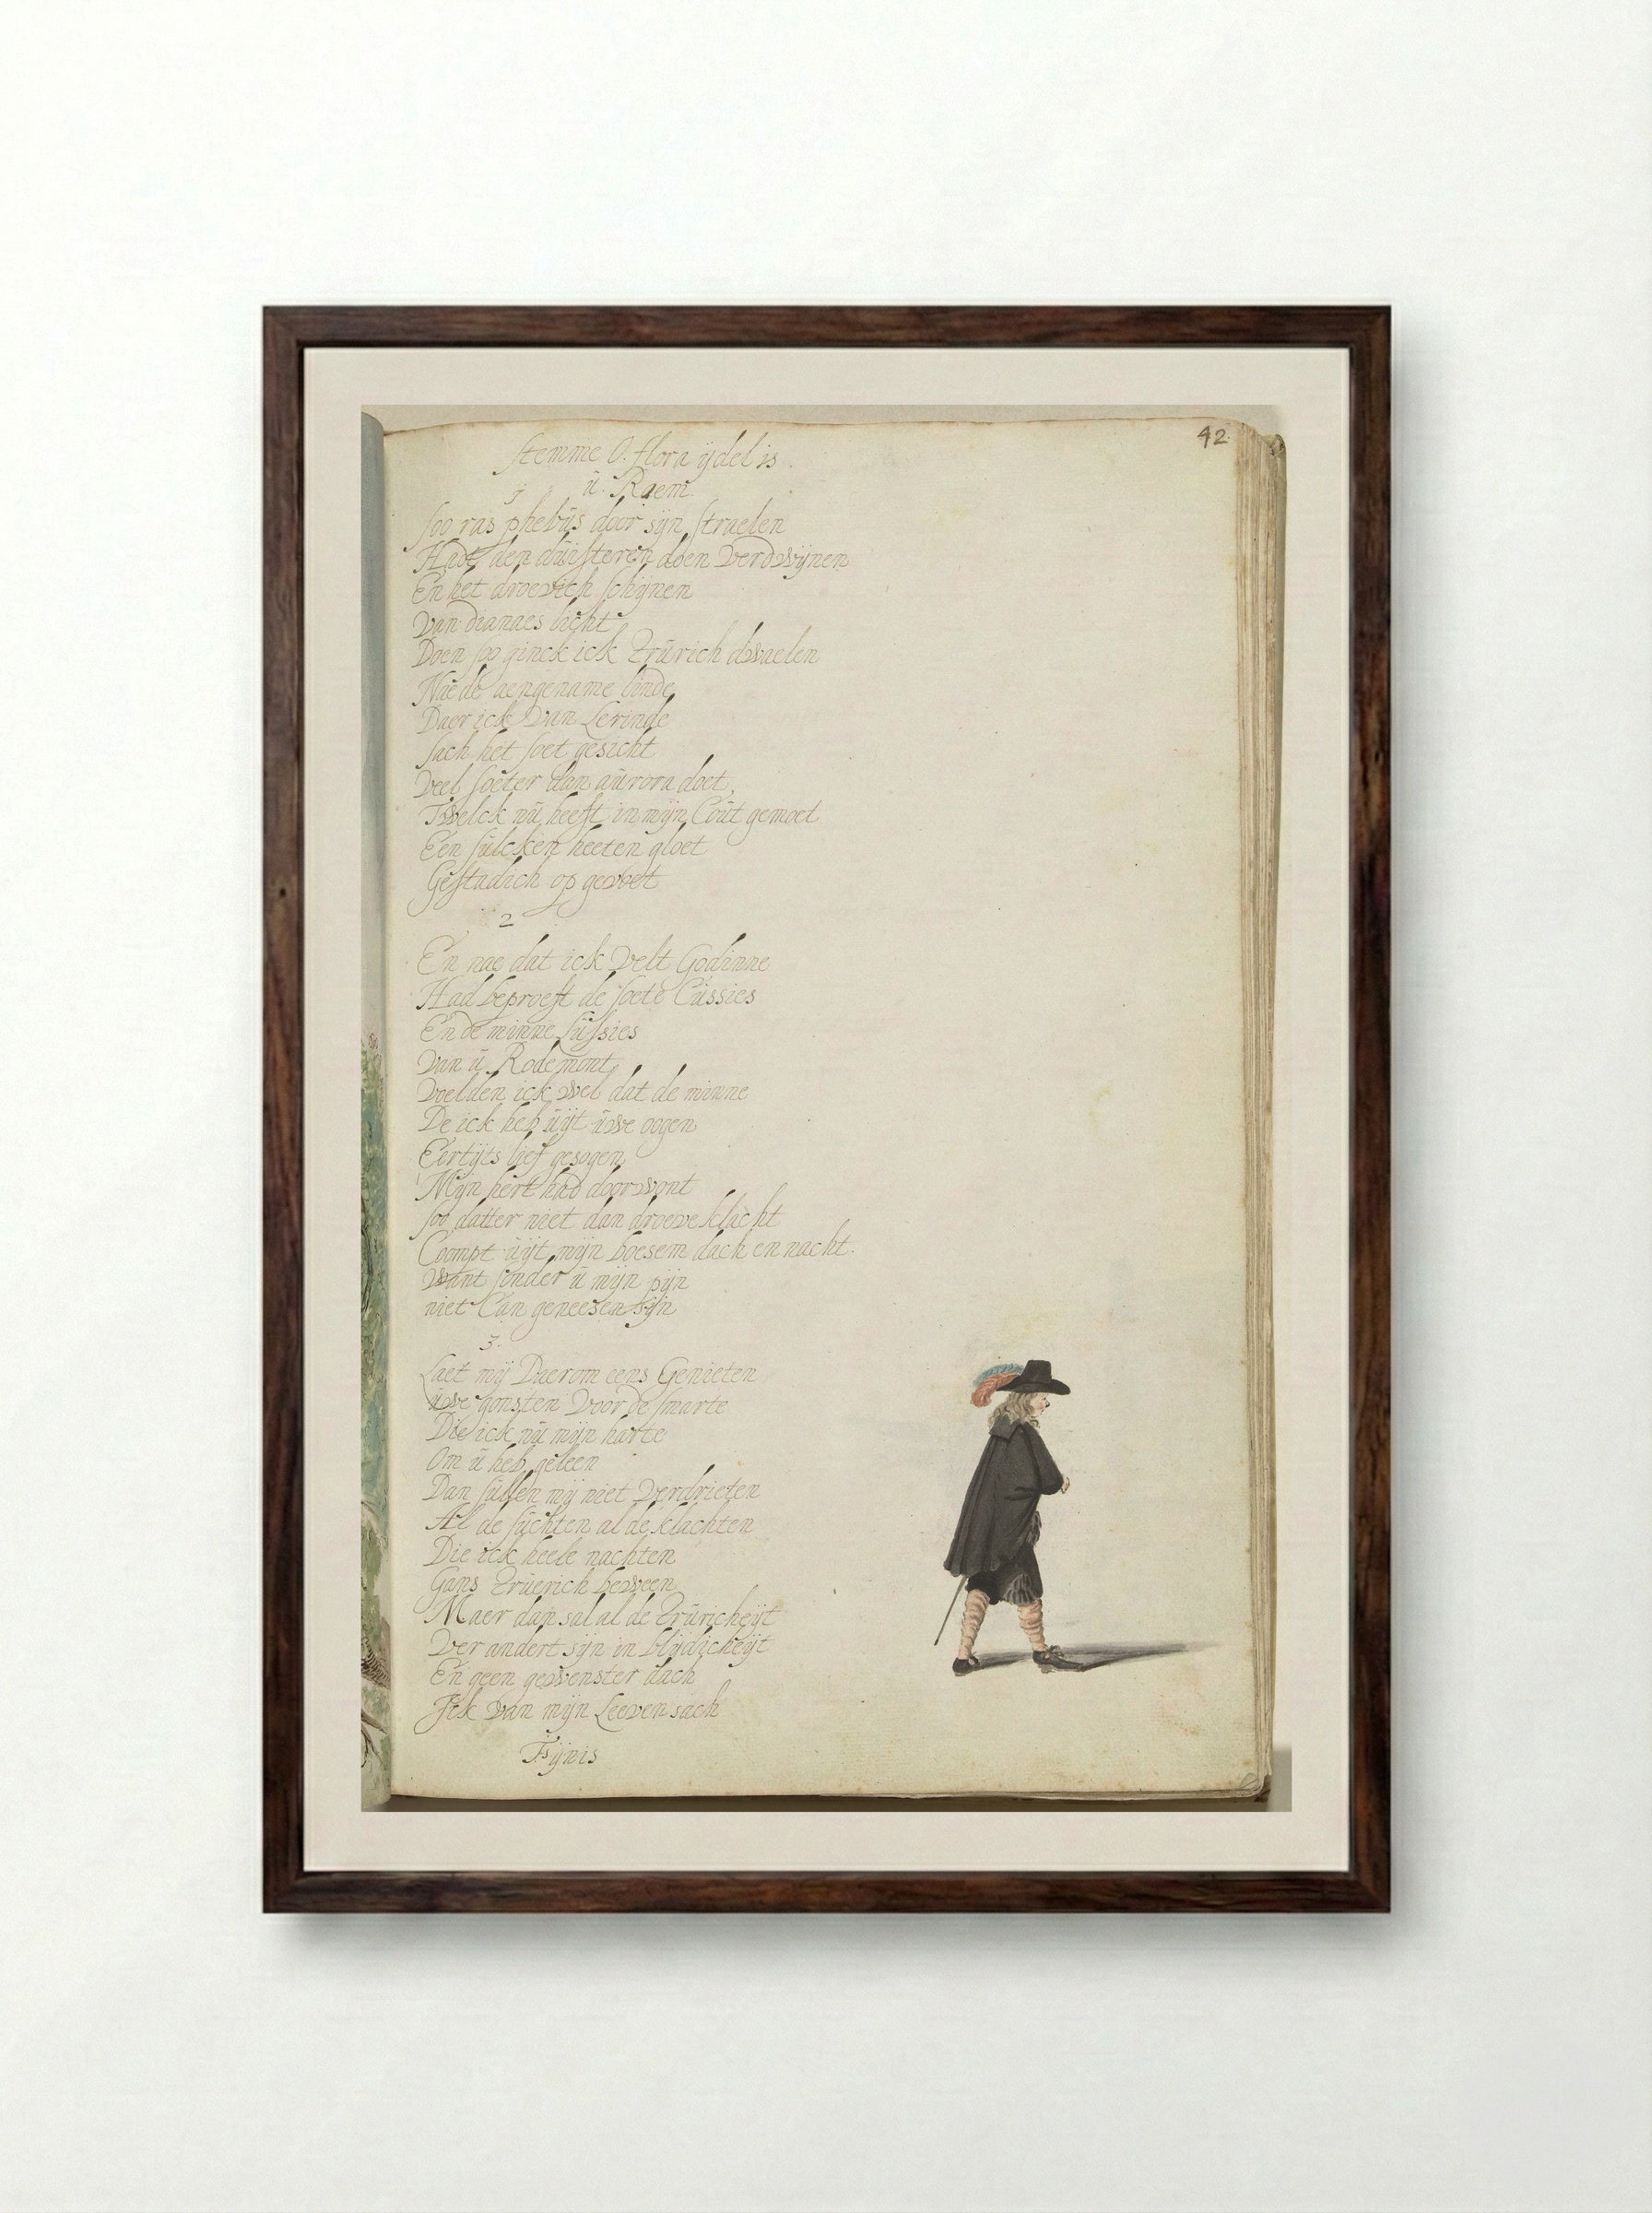 42
Stemme O. flora ijdel is
ü. Raem
1
soo ras phebüs door sijn straelen
Hadt den düisteren doen verdwijnen
En het droevich schijnen
van dianaes licht
Doen soo ginck ick Trürich dwaelen
Nae de aengename linde
Daer ick van Lerinde
sach het soet gesicht
veel soeter dan aürora doet,
Twelck nü heeft in mijn Coüt gemoet
Een sülcken heeten gloet
Gestadich op gevoet
2
En nae dat ick velt Godinne
Had beproeft de soete Cüssies
En de minne Lüssies
van ü Rode mont
voelden ick wel dat de minne
De ick heb üijt üwe oogen
Eertijts lief gesogen
Mijn hert had doorwont
soo datter niet dan droeve klacht
Coompt üijt mijn boesem dach en nacht.
want sonder ü mijn pijn
niet Can geneesen sijn
3.
Laet mij Daerom eens Genieten
üwe gonsten voor de smarte
Die ick nü mijn harte
Om ü heb geleen
Dan süllen mij niet verdrieten
Al de süchten al de klachten
Die ick heele nachten
Gans Trüerich beween
Maer dan sal al de Trüricheijt
ver andert sijn in blijdicheijt
En geen gewenster dach
Ick van mijn Leeven sach
Fijnis